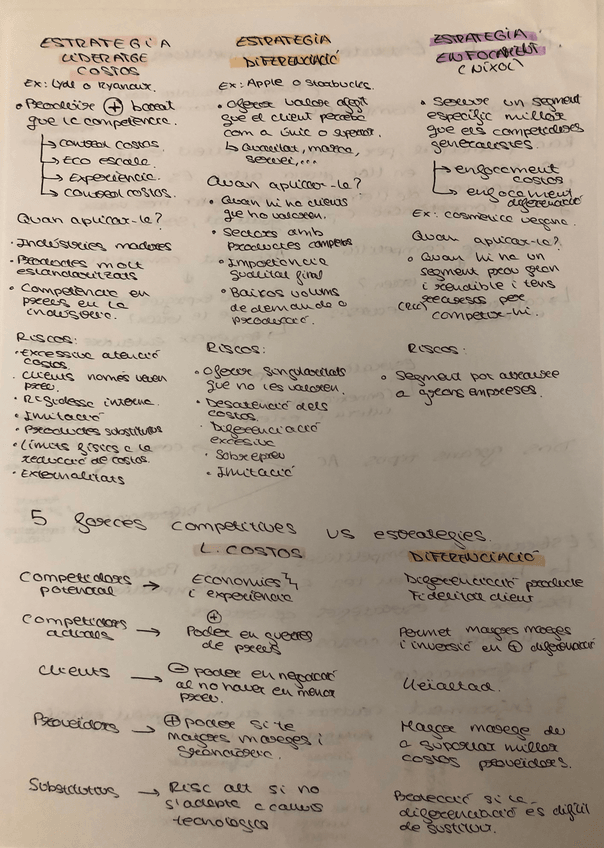 ESTRATEGIA
LIDERATGE
COSTOS
Ex: Lydl o Ryanair.
• Produir ⊕ barat
que la competència.
↳ control costos.
↳ Eco escala.
↳ Experiència.
↳ control costos.
Quan aplicar-la?
• Indústries madures
• Productes molt
estandaritzats
• Competència en
preus en la
indústria.
Riscos:
• Excessiva atenció
costos.
• Clients només veuen
preu.
• Rigidesa interna.
• Imitació
• Productes substitutius
• Límits físics a la
reducció de costos.
• Externalitats
ESTRATEGIA
DIFERENCIACIÓ
Ex: Apple o Starbucks.
• Oferir valor afegit
que el client percebe
com a únic o superior.
↳ Qualitat, marca,
servei,...
Quan aplicar-la?
• Quan hi ha clients
que ho valoren.
• Sectors amb
productes complexos
• Importància
qualitat final
• Baixos volums
de demanda o
producció.
Riscos:
• Oferir singularitats
que no les valoren.
• Desatenció dels
costos.
• Diferenciació
excesiva
• Sobrepreu
• Imitació
ESTRATEGIA
ENFOCAMENT
(NIXOL)
• Servir un segment
específic millor
que els competidors
generalistes.
↳ enfocament
costos
↳ enfocament
diferenciació
Ex: cosmètica vegana.
Quan aplicar-la?
• Quan hi ha un
segment prou gran
i rendible i tens
recursos per
competir-hi.
Riscos:
• Segment pot atraure
a grans empreses.
5 forces competitives vs estrategies.
L. COSTOS
DIFERENCIACIÓ
Competidors
potencial → Economies
i experiència
Diferenciació producte
Fidelitat client
Competidors
actuals → ⊕
Poder en guerres
de preus
Permet majors marges
i inversió en ⊕ diferenciació
Clients → ⊖ poder en negociació
al no haver en menor
preu.
Lleialtad.
Proveïdors → ⊕ poder si te
majors marges i
Major marge de
a suportar millor
costos proveïdors.
Substitutius → Risc alt si no
s'adapta a canvis
tecnologics
Protecció si la
diferenciació és difícil
de sustituir.